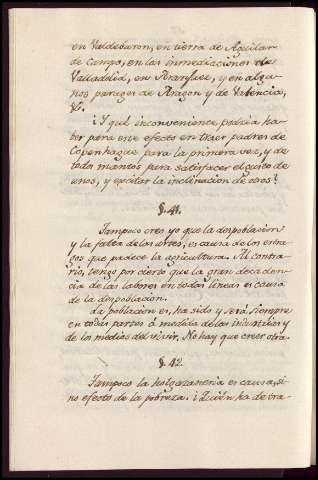 en Valdeburon, en tierra de Aguilar
de Campo, en las inmediaciones de
Valladolid, en Aranjuez, y en algu-
nos parages de Aragon y de Valencia,
¿Y qué inconveniente podria ha-
ber para este efecto en traer padres de
Copenhague para la primera vez, y de
todo mantos para satisfacer el gusto de
unos, y excitar la inclinacion de otros?
§. 41.
Tampoco creo yo que la despoblacion
y la falta de las artes, es causa de los estra-
gos que padece la agricultura. Al contra-
rio, tengo por cierto que la gran decaden-
cia de las labores en todas lineas es causa
de la despoblacion.
La poblacion es, ha sido y será siempre
en todas partes á medida de las industrias y
de los medios del vivir. No hay que creer otra-
§. 42.
Tampoco la holgazaneria es causa, si-
no efecto de la pobreza. ¿Quién ha de tra-